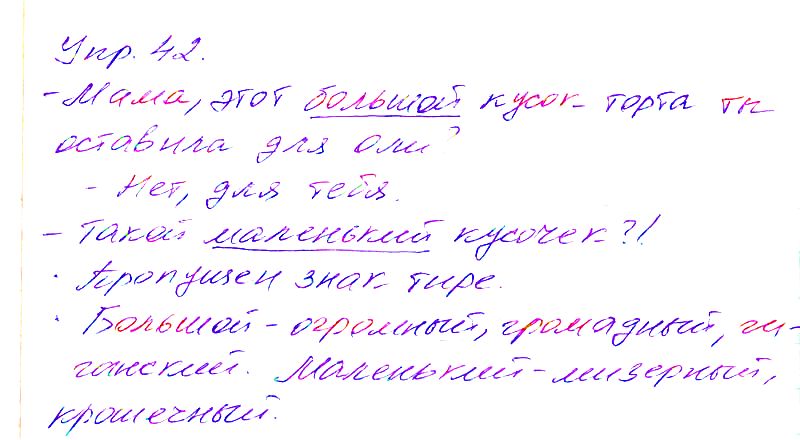 Упр. 42.
- Мама, этот большой кусок торта ты
оставила для Оли?
- Нет, для тебя.
- Такой маленький кусочек?!
· Пропущен знак тире.
· Большой - огромный, громадный, ги-
ганский. Маленький - мизерный,
крошечный.